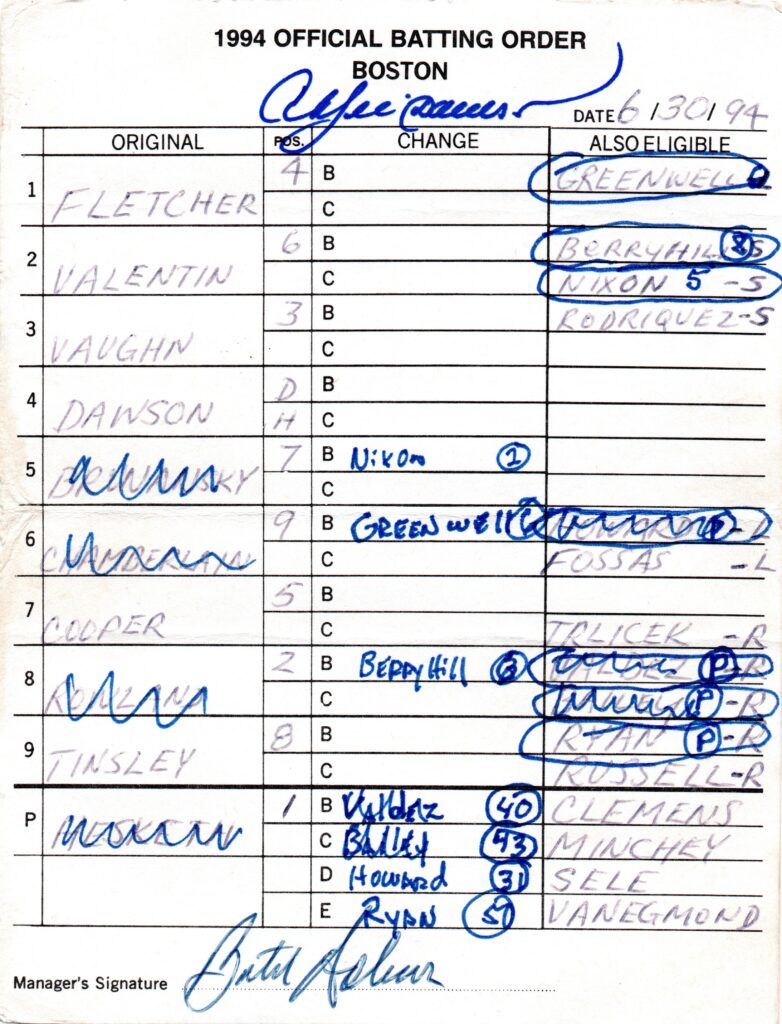 1994 OFFICIAL BATTING ORDER
BOSTON
DATE 6/30/94
ORIGINAL POS. CHANGE ALSO ELIGIBLE
1 FLETCHER 4 B GREENWELL
C
2 VALENTIN 6 B BERRYHILL 8 S
C NIXON 5 -S
3 VAUGHN 3 B RODRIQUEZ-S
C
4 DAWSON D B
H C
5 BRUNANSKY 7 B Nixon 2
C
6 CHAMBERLAIN 9 B GREENWELL HOWARD P -L
C FOSSAS -L
7 COOPER 5 B
C TRLICEK -R
8 ROWLAND 2 B BERRYHill VALDEZ P -R
C P -R
9 TINSLEY 8 B RYAN P -R
C RUSSELL-R
P 1 B VAldez 40 CLEMENS
C BAILEY 43 MINCHEY
D HOWARD 31 SELE
E RYAN 50 VANEGMOND
Manager's Signature